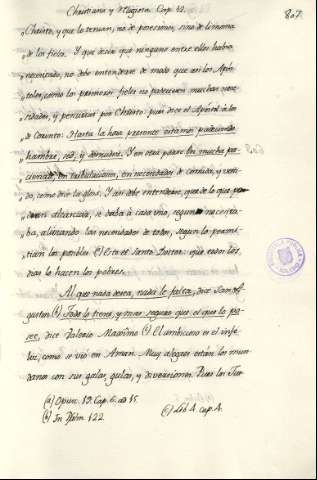 Christiana y Mugeres. Cap. 42.
807.
"Christo, y que lo servian, no de posesiones, sino de limosna
"de los fieles. Y que decir que ninguno entre ellos habia
necesitado, no debe entenderse de modo que así los Após-
toles, como los primeros fieles no padecieran muchas nece-
sidades, y penurias por Christo: pues dice el Apóstol á los
de Corinto: Hasta la hora presente estamos padeciendo
hambre, sed, y desnudez. Y en otra parte: En mucha pa-
ciencia, en tribulaciones, en necesidades
como dice la glosa. Y así debe entenderse, que de lo que po-
se daba á cada uno, segun necesita-
ba, aliviando las necesidades de todos, segun lo permi-
tian los posibles. El Santo Doctor: que todos los
dias lo hacen los pobres.
Al que nada desea, nada le falta, dice San A-
gustin. (a) Todo lo tiene, y mas seguro que el que lo po-
see, dice Valerio Maximo. (c) El ambicioso es el infe-
liz, como se vió en Aman. Muy alegres están los mun-
danos con sus galas, gulas, y diversiones. Pues los Jus-
(a) Opusc. 19. Cap. 6. ad 15.
(b) In Psalm. 122.
(c) Lib. 4. cap. 4.